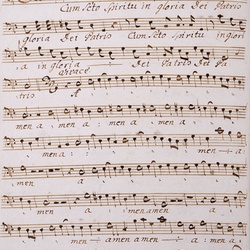 Cum Scto Spiritu in gloria Dei Patris
gloria Dei Patris Cum Scto Spiritu in glori
a in gloria Dei Patris Dei Pa
tris A
men a men a men a men a
men a men a
men a men
men a men amen a
men a men a men a